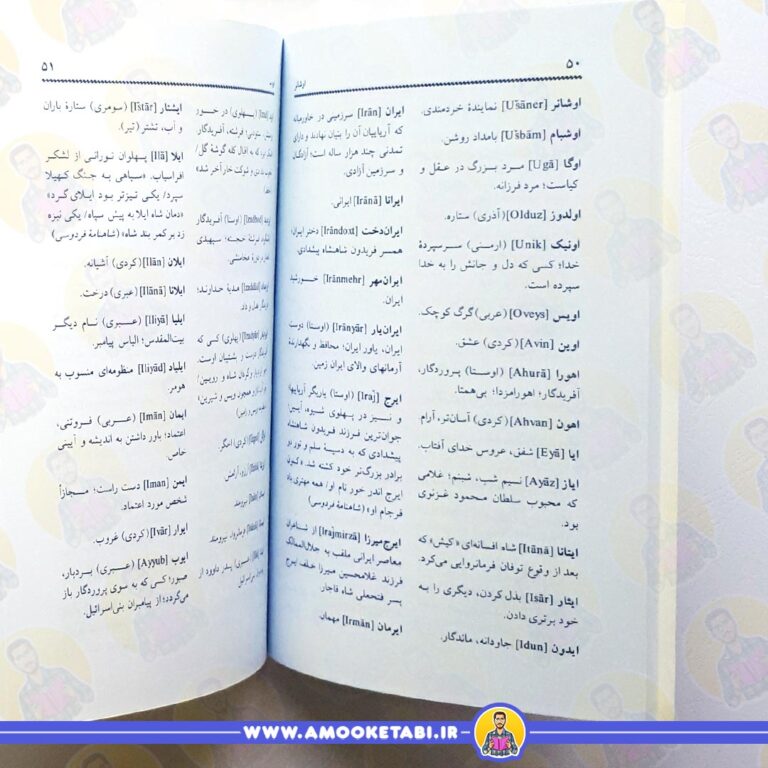 ۵۰
اوشانر
اوشانر [Ušāner] نمایندهٔ خردمندی.
اوشبام [Ušbām] بامداد روشن.
اوگا [Ugā] مرد بزرگ در عقل و
کیاست؛ مرد فرزانه.
اولدوز [Olduz] (آذری) ستاره.
اونیک [Unik] (ارمنی) سرسپردهٔ
خدا؛ کسی که دل و جانش را به خدا
سپرده است.
اویس [Oveys] (عربی) گرگ کوچک.
اوین [Avin] (کردی) عشق.
اهورا [Ahurā] (اوستا) پروردگار،
آفریدگار؛ اهورامزدا؛ بی‌همتا.
اهون [Ahvan] (کردی) آسان‌تر، آرام.
ایا [Eyā] شفق، عروس خدای آفتاب.
ایاز [Ayāz] نسیم شب، شبنم؛ غلامی
که محبوب سلطان محمود غزنوی
بود.
ایتانا [Itānā] شاه افسانه‌ای «کیش» که
بعد از وقوع توفان فرمانروایی می‌کرد.
ایثار [Isār] بذل کردن، دیگری را به
خود برتری دادن.
ایدون [Idun] جاودانه، ماندگار.
ایران [Irān] سرزمینی در خاورمیانه
که آریاییان آن را بنیان نهادند و دارای
تمدنی چند هزار ساله است؛ آزادگان
و سرزمین آزادی.
ایرانا [Irānā] ایرانی.
ایران‌دخت [Irāndoxt] دختر ایران؛
همسر فریدون شاهنشاه پیشدادی.
ایران‌مهر [Irānmehr] خورشید
ایران.
ایران‌یار [Irānyār] (اوستا) دوست
ایران، یاور ایران؛ محافظ و نگهدارندهٔ
آرمانهای والای ایران زمین.
ایرج [Iraj] (اوستا) یاریگر آریاییها
و نیز در پهلوی نیوه، آیین؛
جوان‌ترین فرزند فریدون شاهنشاه
پیشدادی که به دسیسهٔ سلم و تور دو
برادر بزرگ‌تر خود کشته شد. «کنون
ایرج اندر خور نام او/ همه مهتری باد
فرجام او» (شاهنامهٔ فردوسی)
ایرج‌میرزا [Irajmirzā] از شاعران
معاصر ایرانی ملقب به جلال‌الممالک
فرزند غلامحسین میرزا خلف ایرج
پسر فتحعلی شاه قاجار
ایرمان [Irmān] مهمان.
۵۱
(پهلوی) در حضور
(اوستا) آفریدگار
هدیهٔ خداوند؛
(پهلوی) کسی که
ایشتار [Ištār] (سومری) ستارهٔ باران
و آب، تشتر (تیر).
ایلا [Ilā] پهلوان تورانی از لشکر
افراسیاب. «سپاهی به جنگ کهیلا
سپرد/ یکی تیزتر بود ایلای گرد»
«دمان شاه ایلا به پیش سپاه/ یکی نیزه
زد بر کمر بند شاه» (شاهنامهٔ فردوسی)
ایلان [Ilān] (کردی) آشیانه.
ایلانا [Ilānā] (عبری) درخت.
ایلیا [Iliyā] (عبری) نام دیگر
بیت‌المقدس؛ الیاس پیامبر.
ایلیاد [Iliyād] منظومه‌ای منسوب به
هومر.
ایمان [Imān] (عربی) فروتنی،
اعتماد؛ باور داشتن به اندیشه و آیینی
خاص.
ایمن [Iman] دست راست؛ مجازاً
شخص مورد اعتماد.
ایوار [Ivār] (کردی) غروب.
ایوب [Ayyub] (عبری) بردبار،
صبور؛ کسی که به سوی پروردگار باز
می‌گردد؛ از پیامبران بنی‌اسرائیل.
WWW.AMOOKETABI.IR